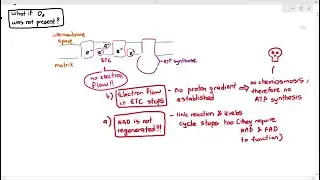 what if O₂
was not present?
intermembrane
space
matrix
e⁻ e⁻ e⁻ e⁻
ETC
ATP synthase
no electron
flow!!
b) Electron flow
in ETC stops
- no proton gradient
established
→ no chemiosmosis,
therefore no
ATP synthesis
a) NAD is not
regenerated!!!
- link reaction & Krebs
cycle stops too (they require
NAD & FAD
to function)